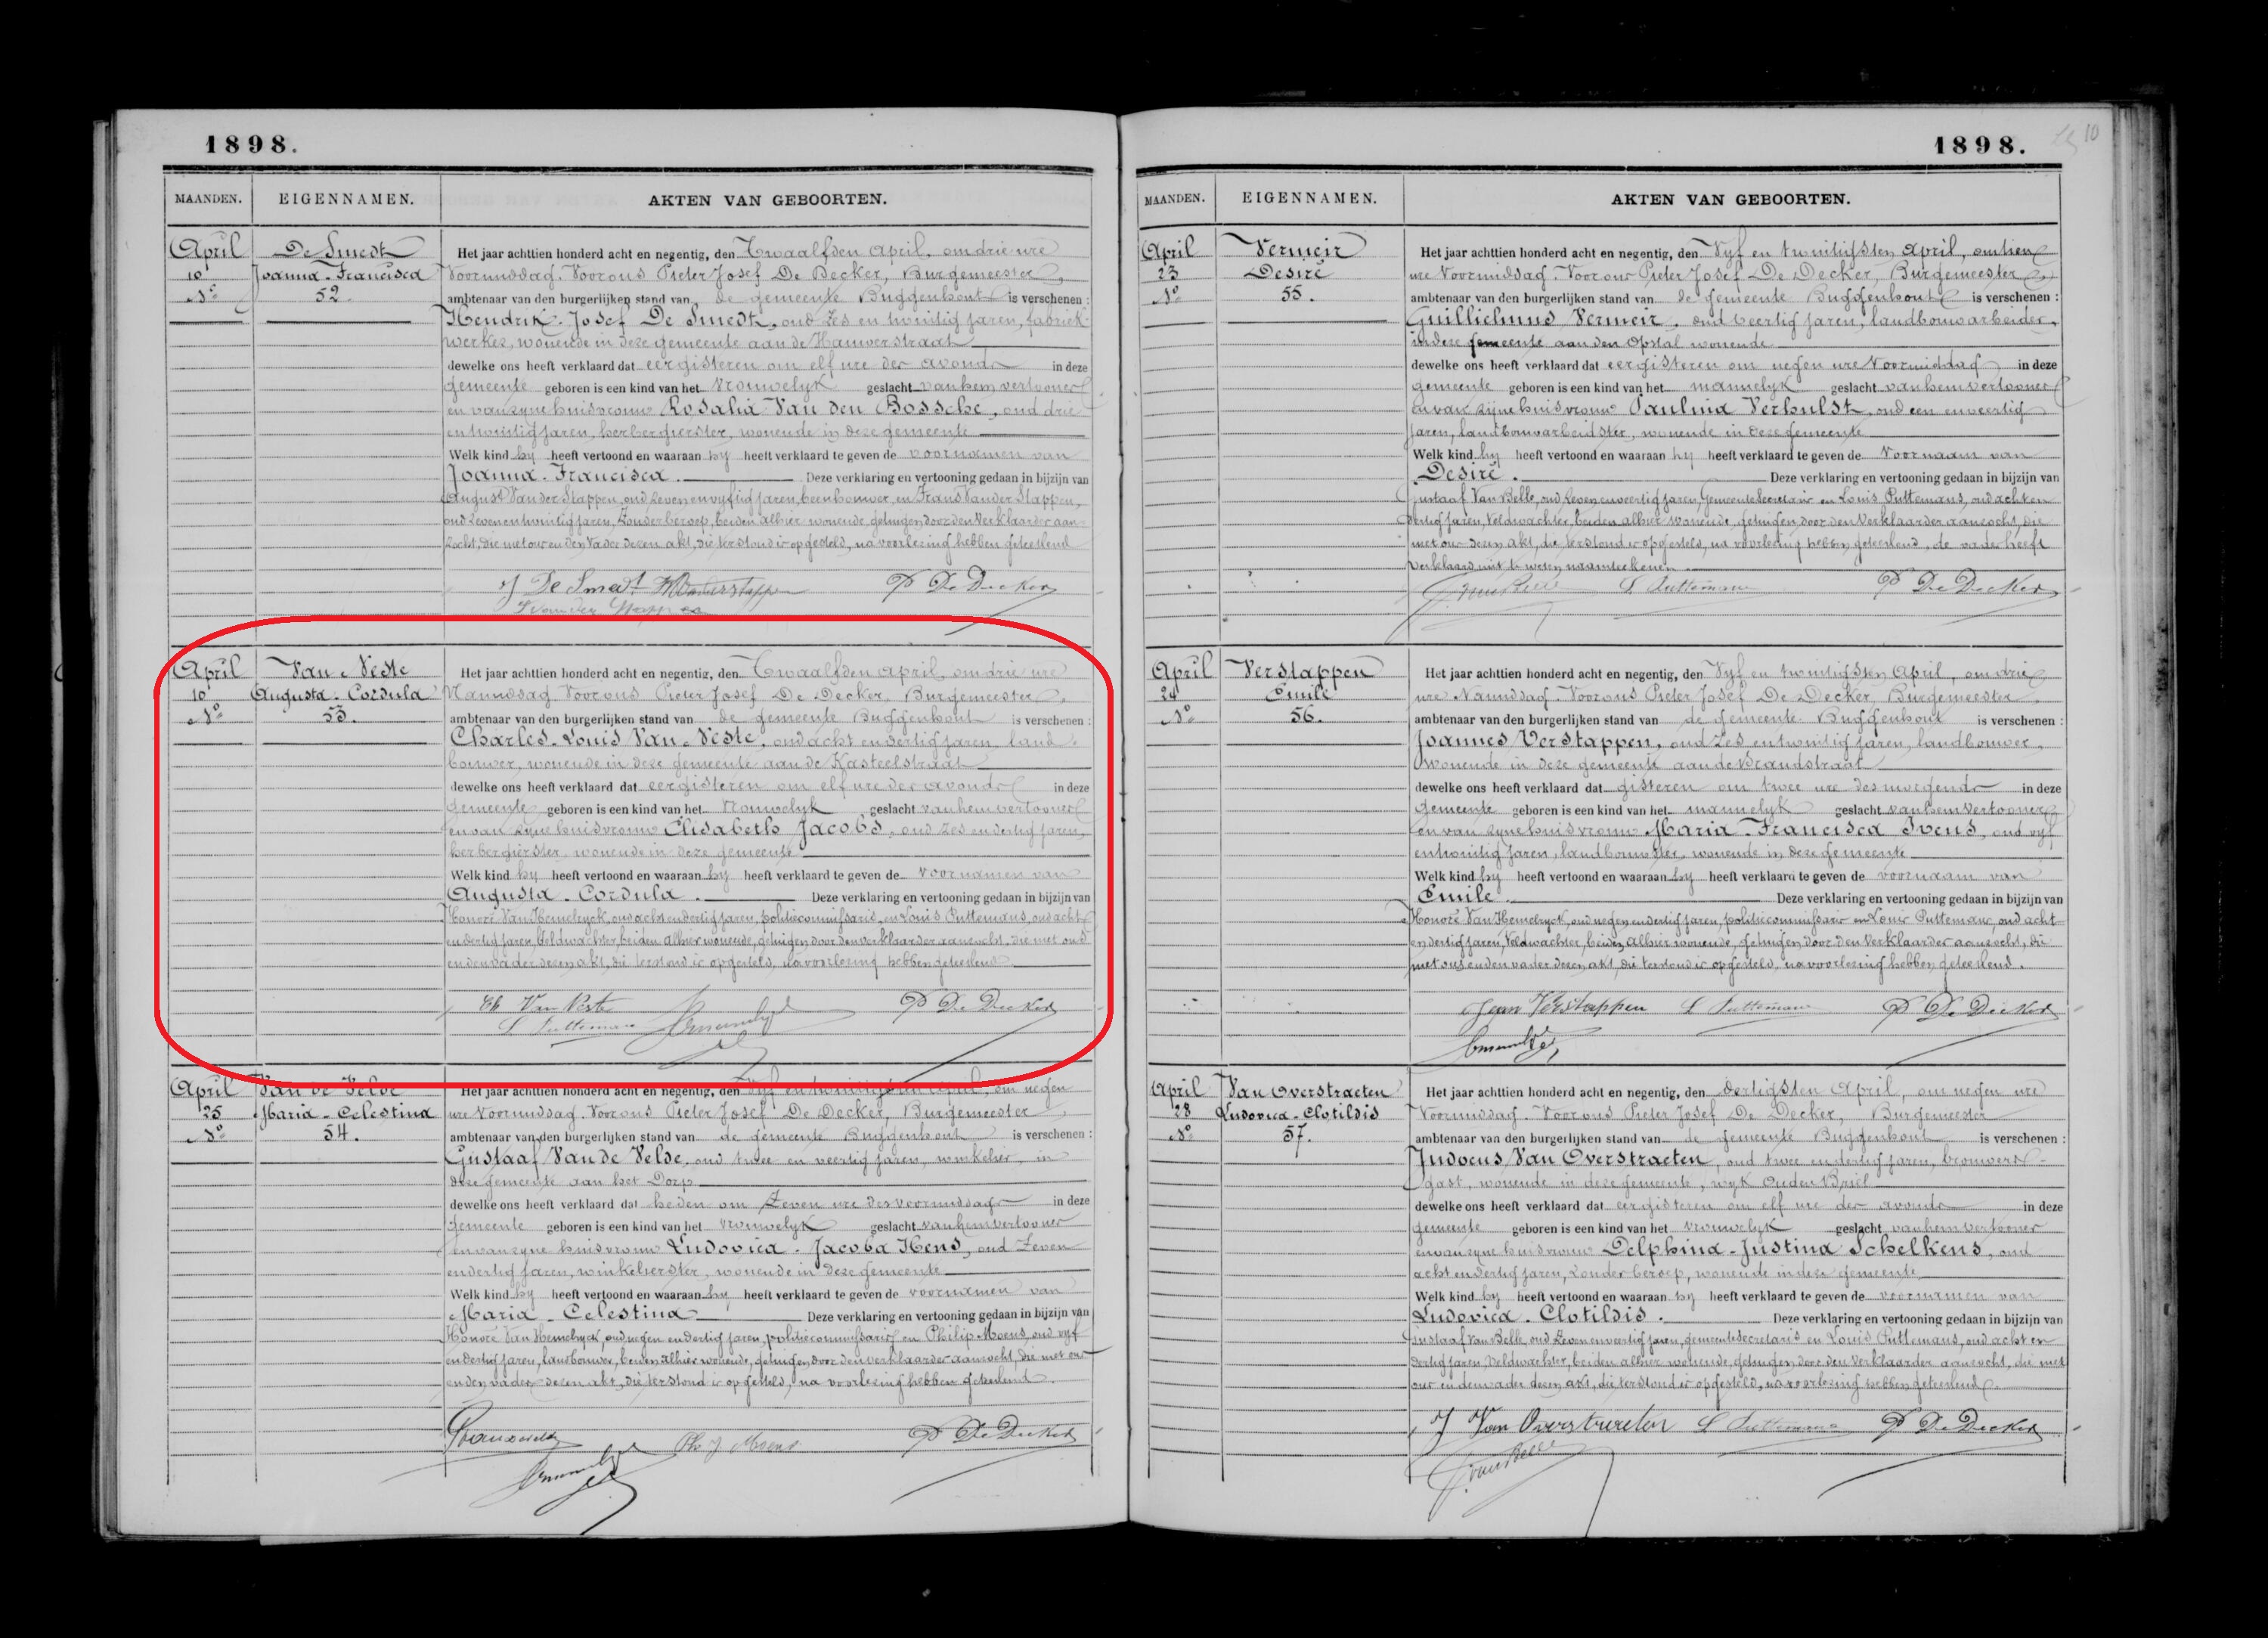 1898.
MAANDEN. EIGENNAMEN. AKTEN VAN GEBOORTEN.
April De Smedt Het jaar achttien honderd acht en negentig, den Twaalfden April, om drie ure
10 Joanna-Francisca Voormiddag. Voor ons Pieter Josef De Decker, Burgemeester,
N° 52. ambtenaar van den burgerlijken stand van de gemeente Buggenhout is verschenen :
Hendrik-Josef De Smedt, oud zes en twintig jaren, fabriek-
werker, wonende in deze gemeente aan de Hauwerstraat
dewelke ons heeft verklaard dat eergisteren om elf ure der avonds in deze
gemeente geboren is een kind van het vrouwelyk geslacht van hem vertooner
en van zyne huisvrouw Rosalia Van den Bossche, oud drie
en twintig jaren, herbergierster, wonende in deze gemeente
Welk kind hy heeft vertoond en waaraan hy heeft verklaard te geven de voornamen van
Joanna-Francisca. Deze verklaring en vertooning gedaan in bijzijn van
August Van der Stappen, oud zeven en vyftig jaren, beenhouwer, en Frans Van der Stappen,
oud zeven en twintig jaren, zonder beroep, beiden alhier wonende, getuigen door den verklaarder aan-
zocht, die met ons en den vader dezen akt, die terstond is opgesteld, na voorlezing hebben geteekend
J De Smedt Vanderstappen P De Decker
April Van Neste Het jaar achttien honderd acht en negentig, den Twaalfden April, om drie ure
10 Augusta-Cordula Namiddag. Voor ons Pieter Josef De Decker, Burgemeester,
N° 53. ambtenaar van den burgerlijken stand van de gemeente Buggenhout is verschenen :
Charles-Louis Van-Neste, oud acht en dertig jaren, land-
bouwer, wonende in deze gemeente aan de Kasteelstraat
dewelke ons heeft verklaard dat eergisteren om elf ure der avonds in deze
gemeente geboren is een kind van het vrouwelyk geslacht van hem vertooner
en van zyne huisvrouw Elisabeth Jacobs, oud zes en dertig jaren,
herbergierster, wonende in deze gemeente
Welk kind hy heeft vertoond en waaraan hy heeft verklaard te geven de voornamen van
Augusta-Cordula. Deze verklaring en vertooning gedaan in bijzijn van
Honoré Van Hemelryck, oud acht en dertig jaren, politiecommissaris, en Louis Puttemans, oud acht
en dertig jaren, Veldwachter, beiden alhier wonende, getuigen door den verklaarder aanzocht, die met ons
en den vader dezen akt, die terstond is opgesteld, na voorlezing hebben geteekend
Ch Van Neste P De Decker
L Puttemans
April Van de Velde Het jaar achttien honderd acht en negentig, den Vyf en twintigsten April, om negen
25 Maria-Celestina ure Voormiddag. Voor ons Pieter Josef De Decker, Burgemeester
N° 54. ambtenaar van den burgerlijken stand van de gemeente Buggenhout is verschenen :
Gustaaf Van de Velde, oud twee en veertig jaren, winkelier, in
deze gemeente aan het Dorp
dewelke ons heeft verklaard dat heden om zeven ure des voormiddags in deze
gemeente geboren is een kind van het vrouwelyk geslacht van hem vertooner
en van zyne huisvrouw Ludovica-Jacoba Hens, oud zeven
en dertig jaren, winkelierster, wonende in deze gemeente
Welk kind hy heeft vertoond en waaraan hy heeft verklaard te geven de voornamen van
Maria-Celestina Deze verklaring en vertooning gedaan in bijzijn van
Honoré Van Hemelryck, oud negen en dertig jaren, politiecommissaris en Philip Moens, oud vyf
en dertig jaren, landbouwer, beiden alhier wonende, getuigen door den verklaarder aanzocht, die met ons
en den vader dezen akt, die terstond is opgesteld, na voorlezing hebben geteekend.
Ph J Moens P De Decker
1898. 10
MAANDEN. EIGENNAMEN. AKTEN VAN GEBOORTEN.
April Vermeir Het jaar achttien honderd acht en negentig, den Vyf en twintigsten April, om tien
23 Desiré ure Voormiddag. Voor ons Pieter Josef De Decker, Burgemeester
N° 55. ambtenaar van den burgerlijken stand van de gemeente Buggenhout is verschenen :
Guillielmus Vermeir, oud veertig jaren, landbouwarbeider,
in deze gemeente aan den Opstal wonende
dewelke ons heeft verklaard dat eergisteren om negen ure Voormiddag in deze
gemeente geboren is een kind van het mannelyk geslacht van hem vertooner
en van zijne huisvrouw Paulina Verhulst, oud een en veertig
jaren, landbouwarbeidster, wonende in deze gemeente
Welk kind hy heeft vertoond en waaraan hy heeft verklaard te geven de Voornaam van
Desiré. Deze verklaring en vertooning gedaan in bijzijn van
Gustaaf Van Belle, oud zeven en veertig jaren, Gemeentesecretaris en Louis Puttemans, oud acht en
dertig jaren, Veldwachter, beiden alhier wonende, getuigen, door den verklaarder aanzocht, die
met ons dezen akt, die terstond is opgesteld, na voorlezing hebben geteekend, de vader heeft
verklaard niet te weten naamteekenen.
L Puttemans P De Decker
April Verstappen Het jaar achttien honderd acht en negentig, den Vyf en twintigsten April, om drie
24 Emile ure Namiddag. Voor ons Pieter Josef De Decker, Burgemeester
N° 56. ambtenaar van den burgerlijken stand van de gemeente Buggenhout is verschenen :
Joannes Verstappen, oud zes en twintig jaren, landbouwer,
wonende in deze gemeente aan de Brandstraat
dewelke ons heeft verklaard dat gisteren om twee ure des morgends in deze
gemeente geboren is een kind van het mannelyk geslacht van hem vertooner
en van zyne huisvrouw Maria-Francisca Ivens, oud vyf
en twintig jaren, landbouwster, wonende in deze gemeente
Welk kind hy heeft vertoond en waaraan hy heeft verklaard te geven de voornaam van
Emile. Deze verklaring en vertooning gedaan in bijzijn van
Honoré Van Hemelryck, oud negen en dertig jaren, politiecommissaris en Louis Puttemans, oud acht
en dertig jaren, Veldwachter, beiden alhier wonende, getuigen door den verklaarder aanzocht, die
met ons en den vader dezen akt, die terstond is opgesteld, na voorlezing hebben geteekend.
Jean Verstappen L Puttemans P De Decker
April Van Overstraeten Het jaar achttien honderd acht en negentig, den dertigsten April, om negen ure
28 Ludovica-Clotildis Voormiddag. Voor ons Pieter Josef De Decker, Burgemeester
N° 57. ambtenaar van den burgerlijken stand van de gemeente Buggenhout is verschenen :
Judocus Van Overstraeten, oud twee en dertig jaren, brouwers-
gast, wonende in deze gemeente, wyk Ouden Briel
dewelke ons heeft verklaard dat eergisteren om elf ure der avonds in deze
gemeente geboren is een kind van het vrouwelyk geslacht van hem vertooner
en van zyne huisvrouw Delphina-Justina Schelkens, oud
acht en dertig jaren, zonder beroep, wonende in deze gemeente
Welk kind hy heeft vertoond en waaraan hy heeft verklaard te geven de voornamen van
Ludovica-Clotildis. Deze verklaring en vertooning gedaan in bijzijn van
Gustaaf Van Belle, oud zeven en veertig jaren, gemeentesecretaris en Louis Puttemans, oud acht en
dertig jaren, Veldwachter, beiden alhier wonende, getuigen door den verklaarder aanzocht, die met
ons en den vader dezen akt, die terstond is opgesteld, na voorlezing hebben geteekend.
J Van Overstraeten L Puttemans P De Decker
G. VanBelle